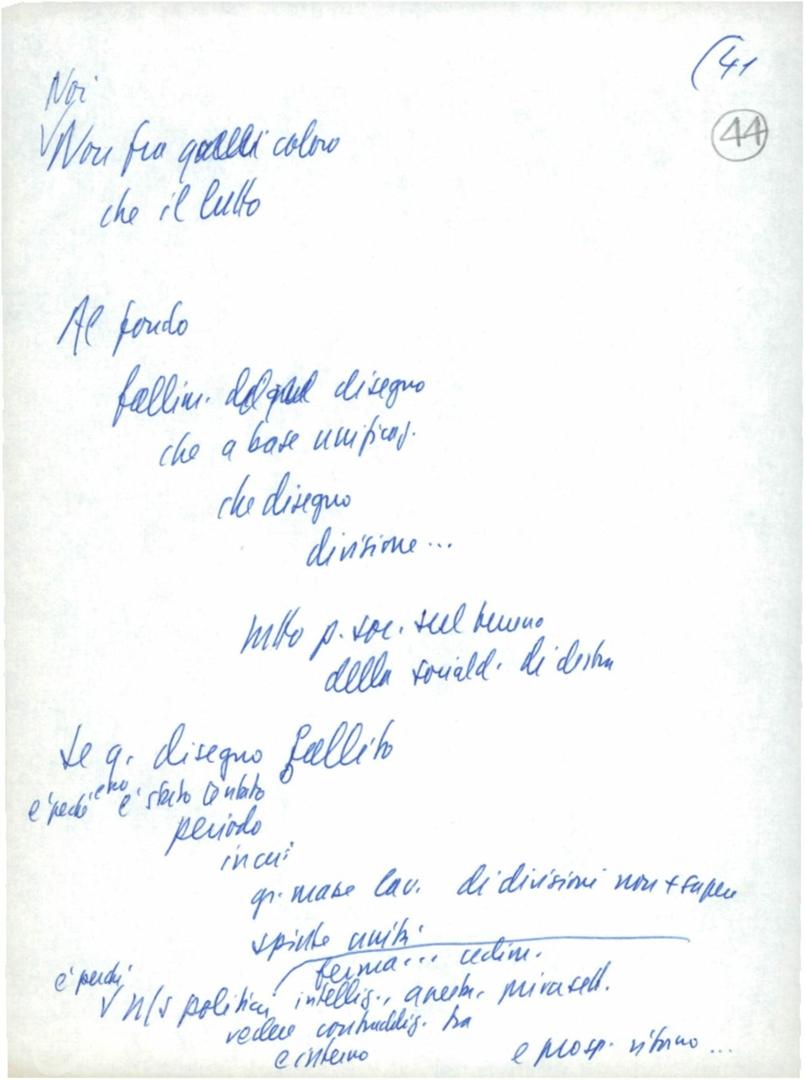 (41
44
Noi
Non fra quelli coloro
che il lutto
Al fondo
fallim. disegno
che a base unificaz.
che disegno
divisione...
tutto p. soc. sul terreno
della sociald. di destra
Se q. disegno fallito
e' perchè e' stato tentato
periodo
in cui
gr. masse lav. di divisioni non + sapere
spinte
ferma... cedim.
e' perchè
n/s politica, intellig.,
vedere contraddiz. tra
e interno e prosp. ritorno...